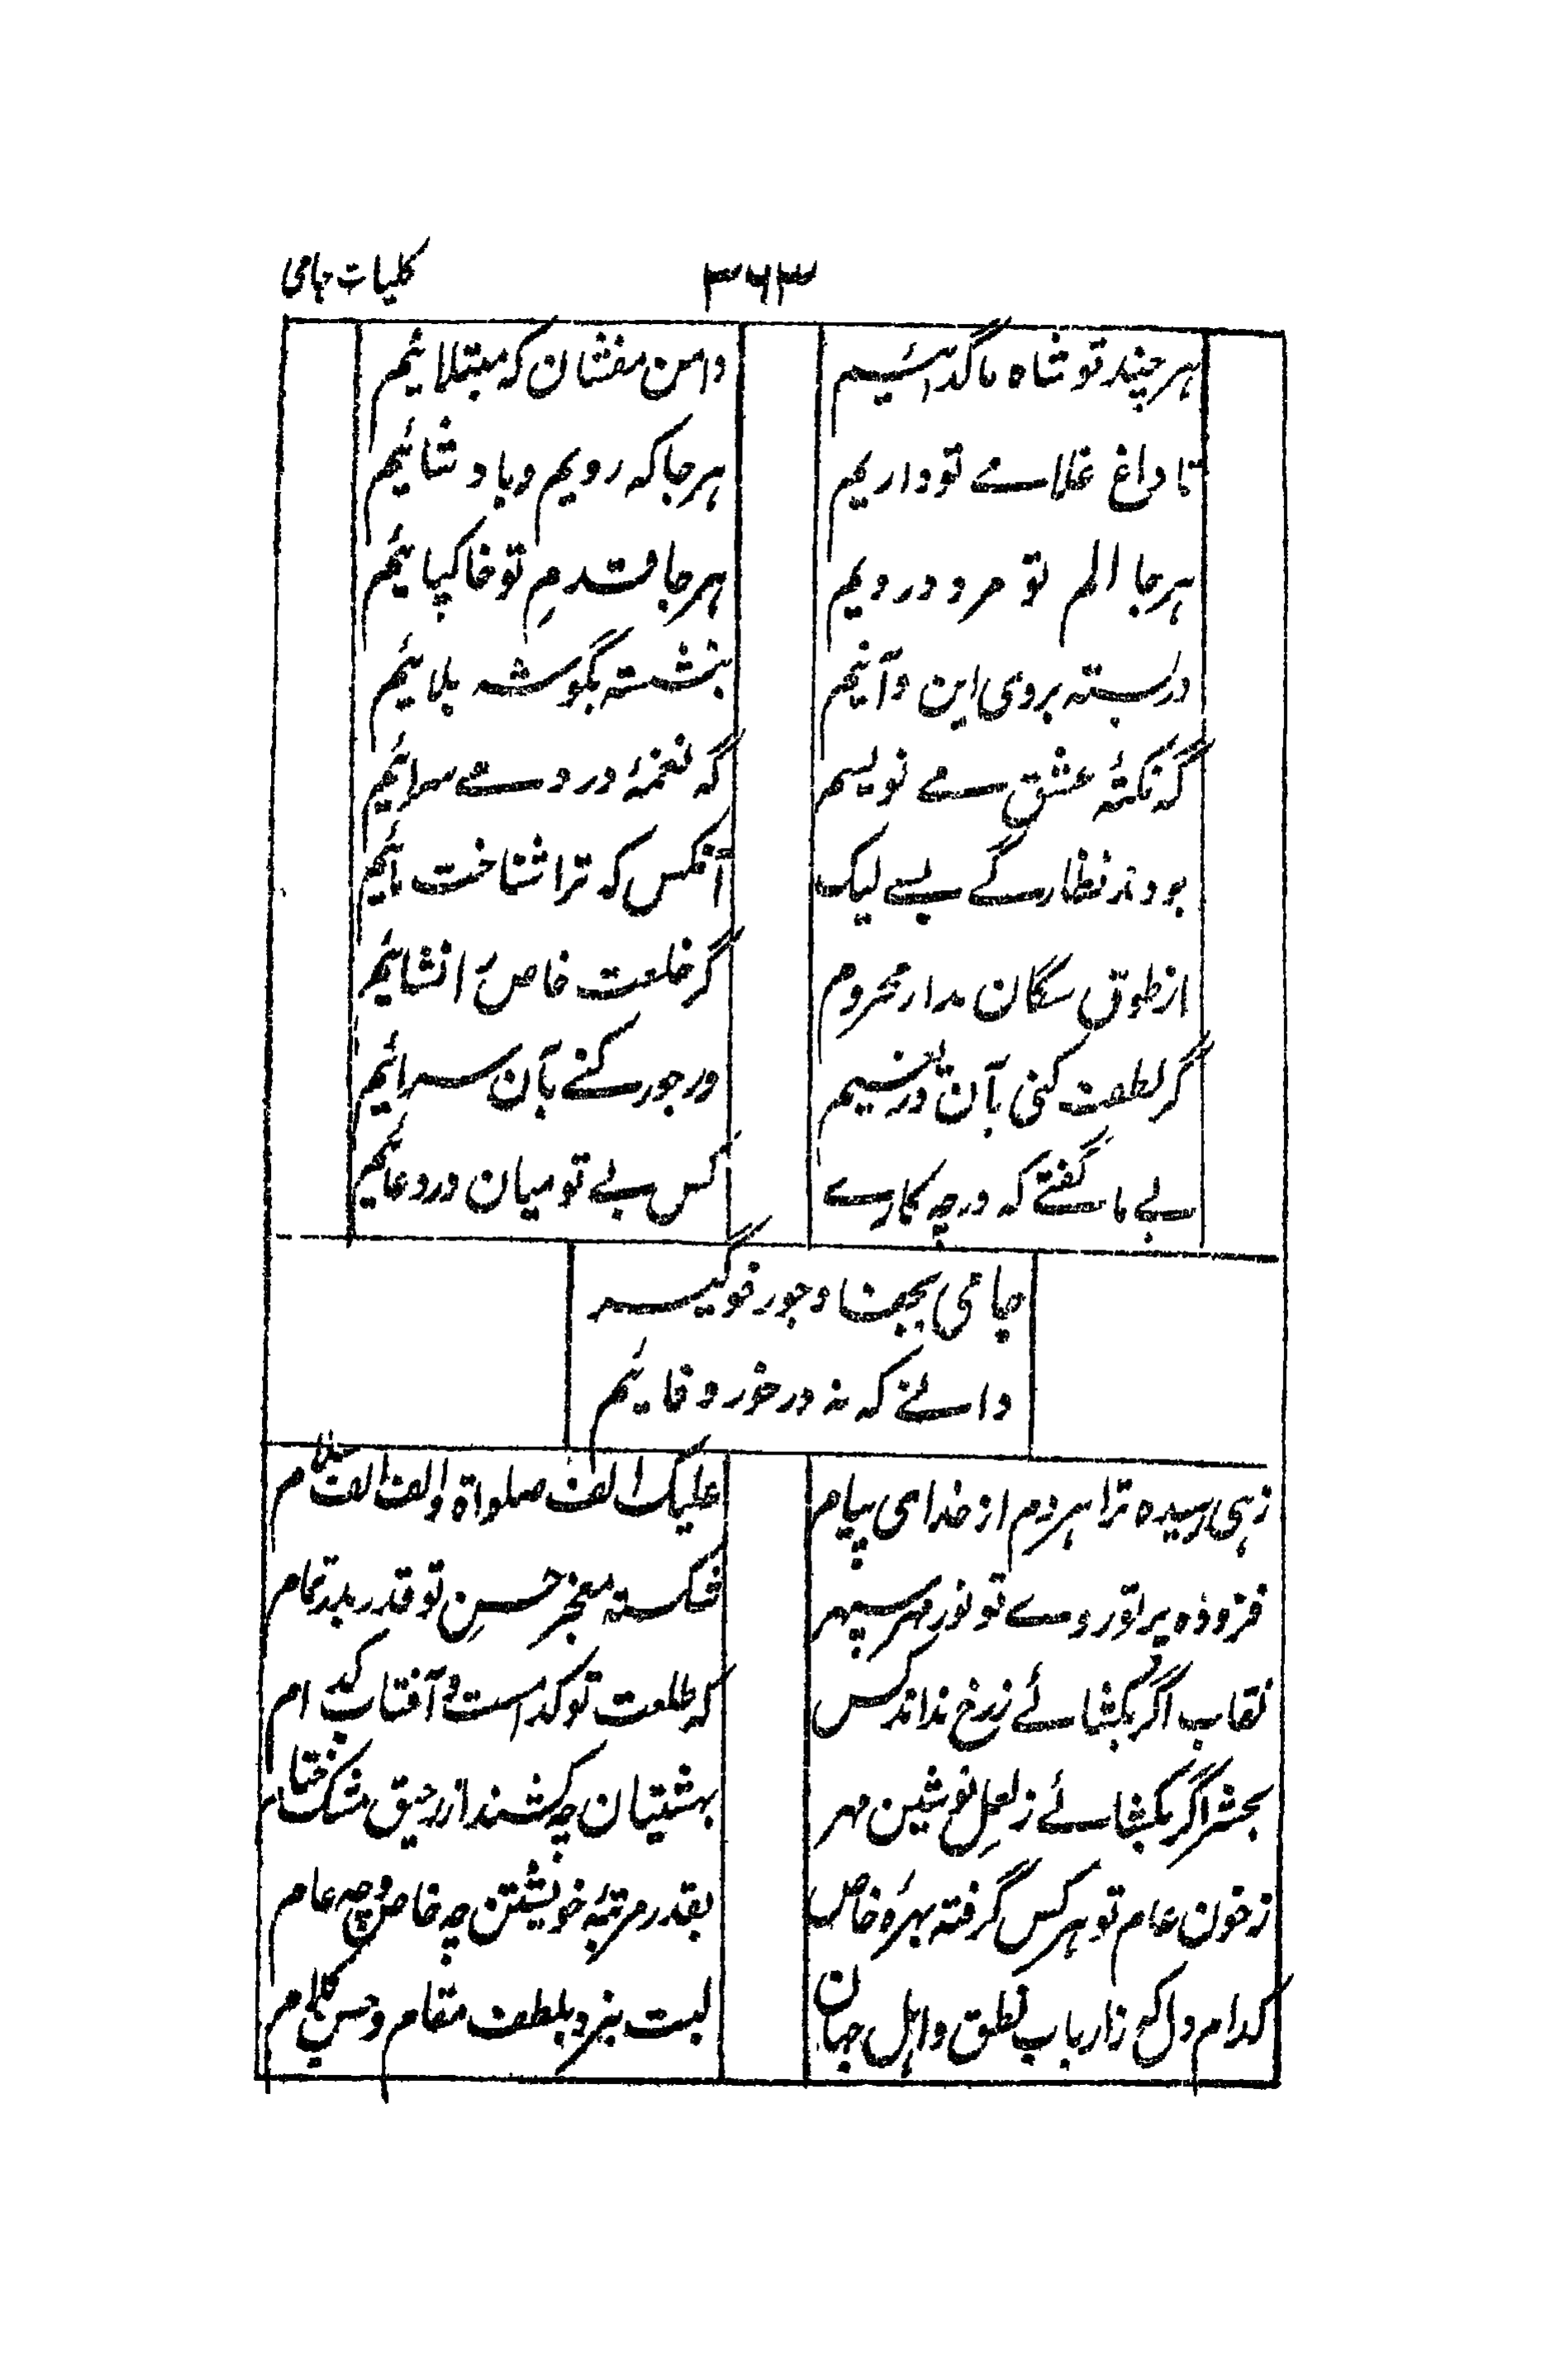 کلیات جامی
۳۶۳
هرچند تو شاه ما گدائیم
دامن مفشان که مبتلائیم
تا داغ غلامے تو داریم
هرجا که رویم و بادشائیم
هرجا الم تو مرودردیم
هرجا قدمِ تو خاکپائیم
دربسته بروی این و آنیم
بنشسته بگوشه بلائیم
گه نکتهٔ عشق مے نویسیم
گه نغمهٔ درد مے سرائیم
بودند نظارگے بسے لیک
آنکس که ترا شناخت مائیم
از طوق سگان مدار محروم
گر خلعت خاص را نشائیم
گر لطف کنی بآن
ور جور کنے بآن سرائیم
بے ما گفتے که در چه کارے
کس بے تو میان درد عائیم
جامی بجفا و جور خوگیر
دانے که نه در خور وفائیم
زهی رسیده ترا هردم از خدای پیام
علیک الف صلواة و الف الف سلام
فزوده پرتو روے تو نور مهر سپهر
شکسته معجز حسنِ تو قدر بدر تمام
نقاب اگر بکشائے ز رخ نداند کس
که طلعت تو کدامست و آفتاب کدام
بحشر اگر بکشائے ز لعلِ نوشین مهر
بهشتیان چه کشند از رحیق مشک ختام
ز خون عام تو هرکس گرفته بهرهٔ خاص
بقدر مرتبهٔ خویشتن چه خاص و چه عام
کدام دل که ز ارباب نطق و اهل جهان
لبت نبرد بلطف مقام و حسن کلام